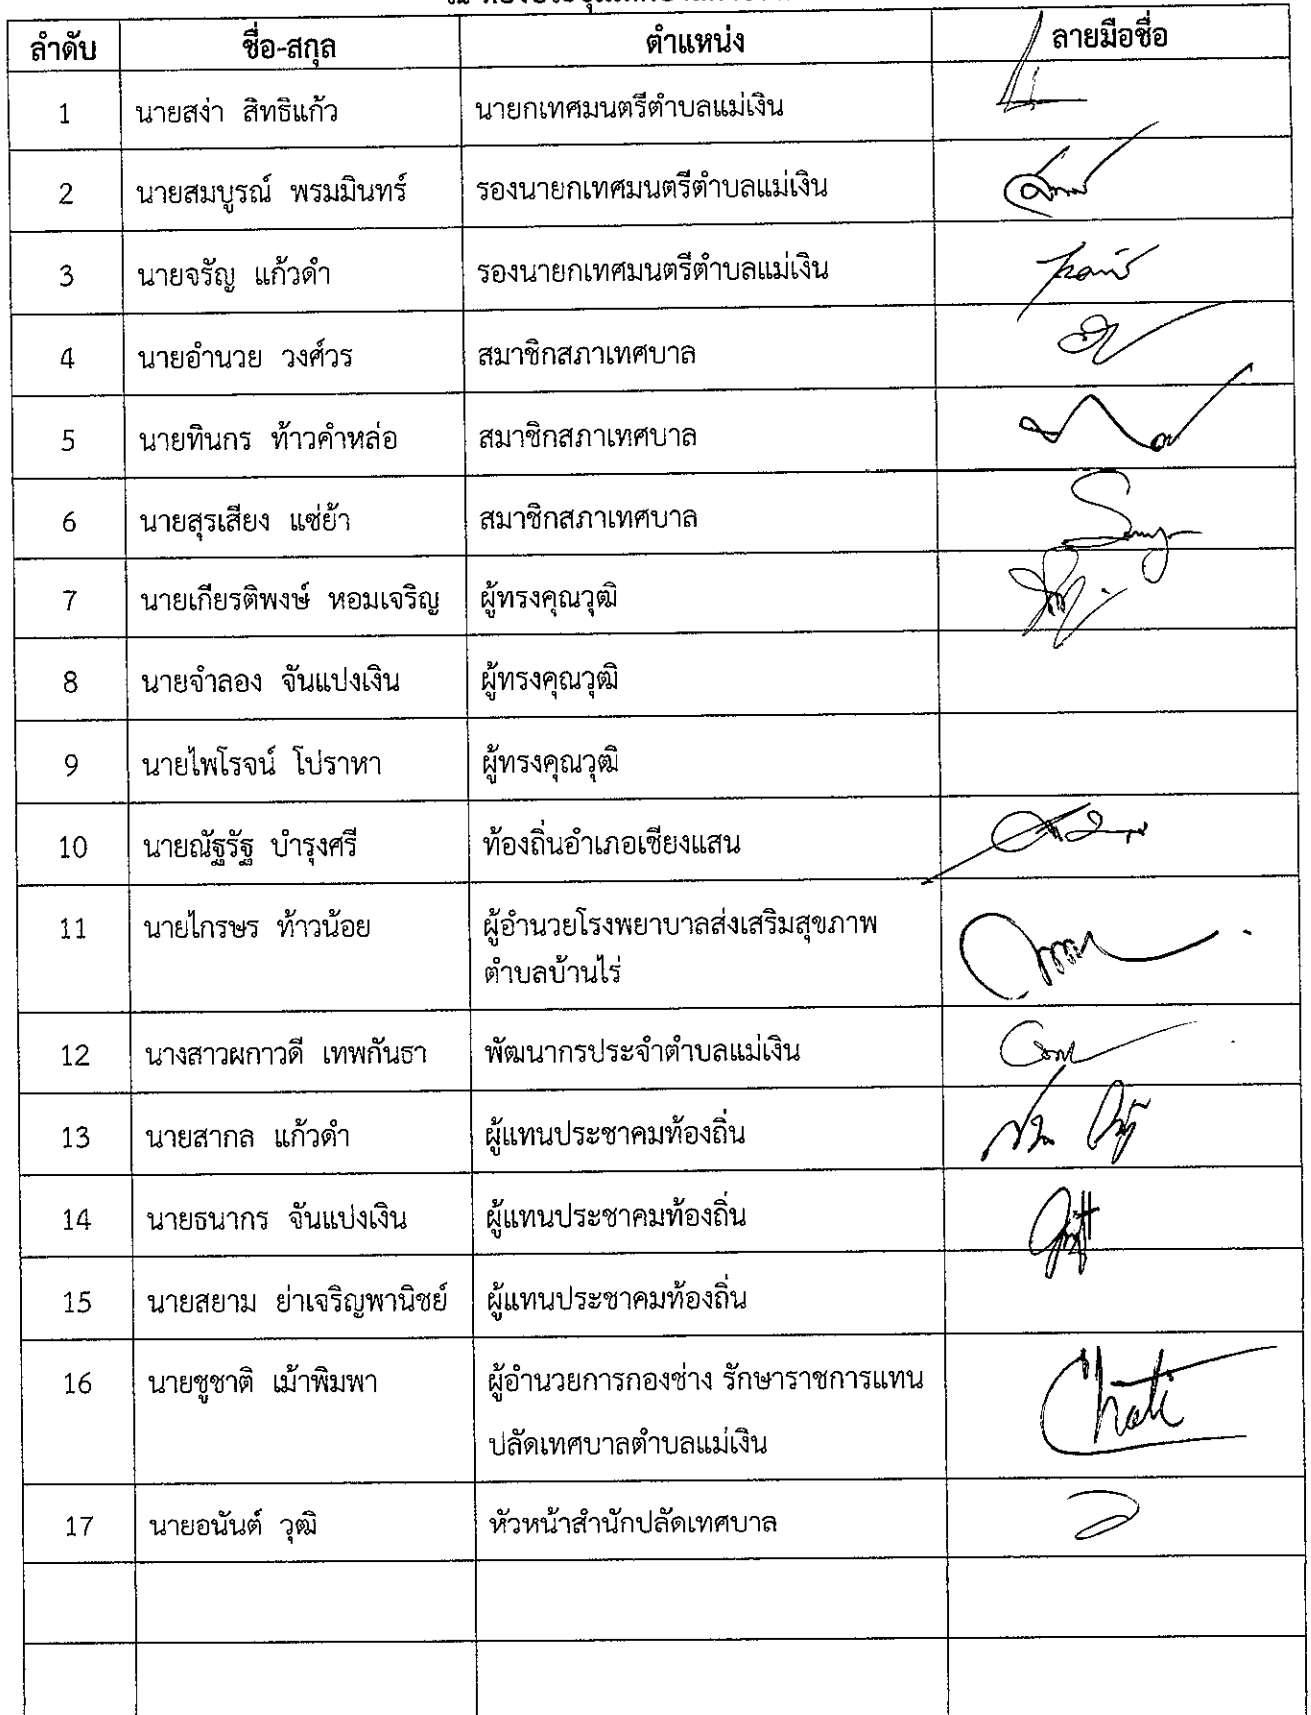 ลำดับ ชื่อ-สกุล ตำแหน่ง ลายมือชื่อ
1 นายสง่า สิทธิแก้ว นายกเทศมนตรีตำบลแม่เงิน
2 นายสมบูรณ์ พรมมินทร์ รองนายกเทศมนตรีตำบลแม่เงิน
3 นายจรัญ แก้วดำ รองนายกเทศมนตรีตำบลแม่เงิน
4 นายอำนวย วงศ์วร สมาชิกสภาเทศบาล
5 นายทินกร ท้าวคำหล่อ สมาชิกสภาเทศบาล
6 นายสุรเสียง แซ่ย้า สมาชิกสภาเทศบาล
7 นายเกียรติพงษ์ หอมเจริญ ผู้ทรงคุณวุฒิ
8 นายจำลอง จันแปงเงิน ผู้ทรงคุณวุฒิ
9 นายไพโรจน์ โปราหา ผู้ทรงคุณวุฒิ
10 นายณัฐรัฐ บำรุงศรี ท้องถิ่นอำเภอเชียงแสน
11 นายไกรษร ท้าวน้อย ผู้อำนวยโรงพยาบาลส่งเสริมสุขภาพ
ตำบลบ้านไร่
12 นางสาวผกาวดี เทพกันธา พัฒนากรประจำตำบลแม่เงิน
13 นายสากล แก้วดำ ผู้แทนประชาคมท้องถิ่น
14 นายธนากร จันแปงเงิน ผู้แทนประชาคมท้องถิ่น
15 นายสยาม ย่าเจริญพานิชย์ ผู้แทนประชาคมท้องถิ่น
16 นายชูชาติ เม้าพิมพา ผู้อำนวยการกองช่าง รักษาราชการแทน
ปลัดเทศบาลตำบลแม่เงิน
17 นายอนันต์ วุฒิ หัวหน้าสำนักปลัดเทศบาล